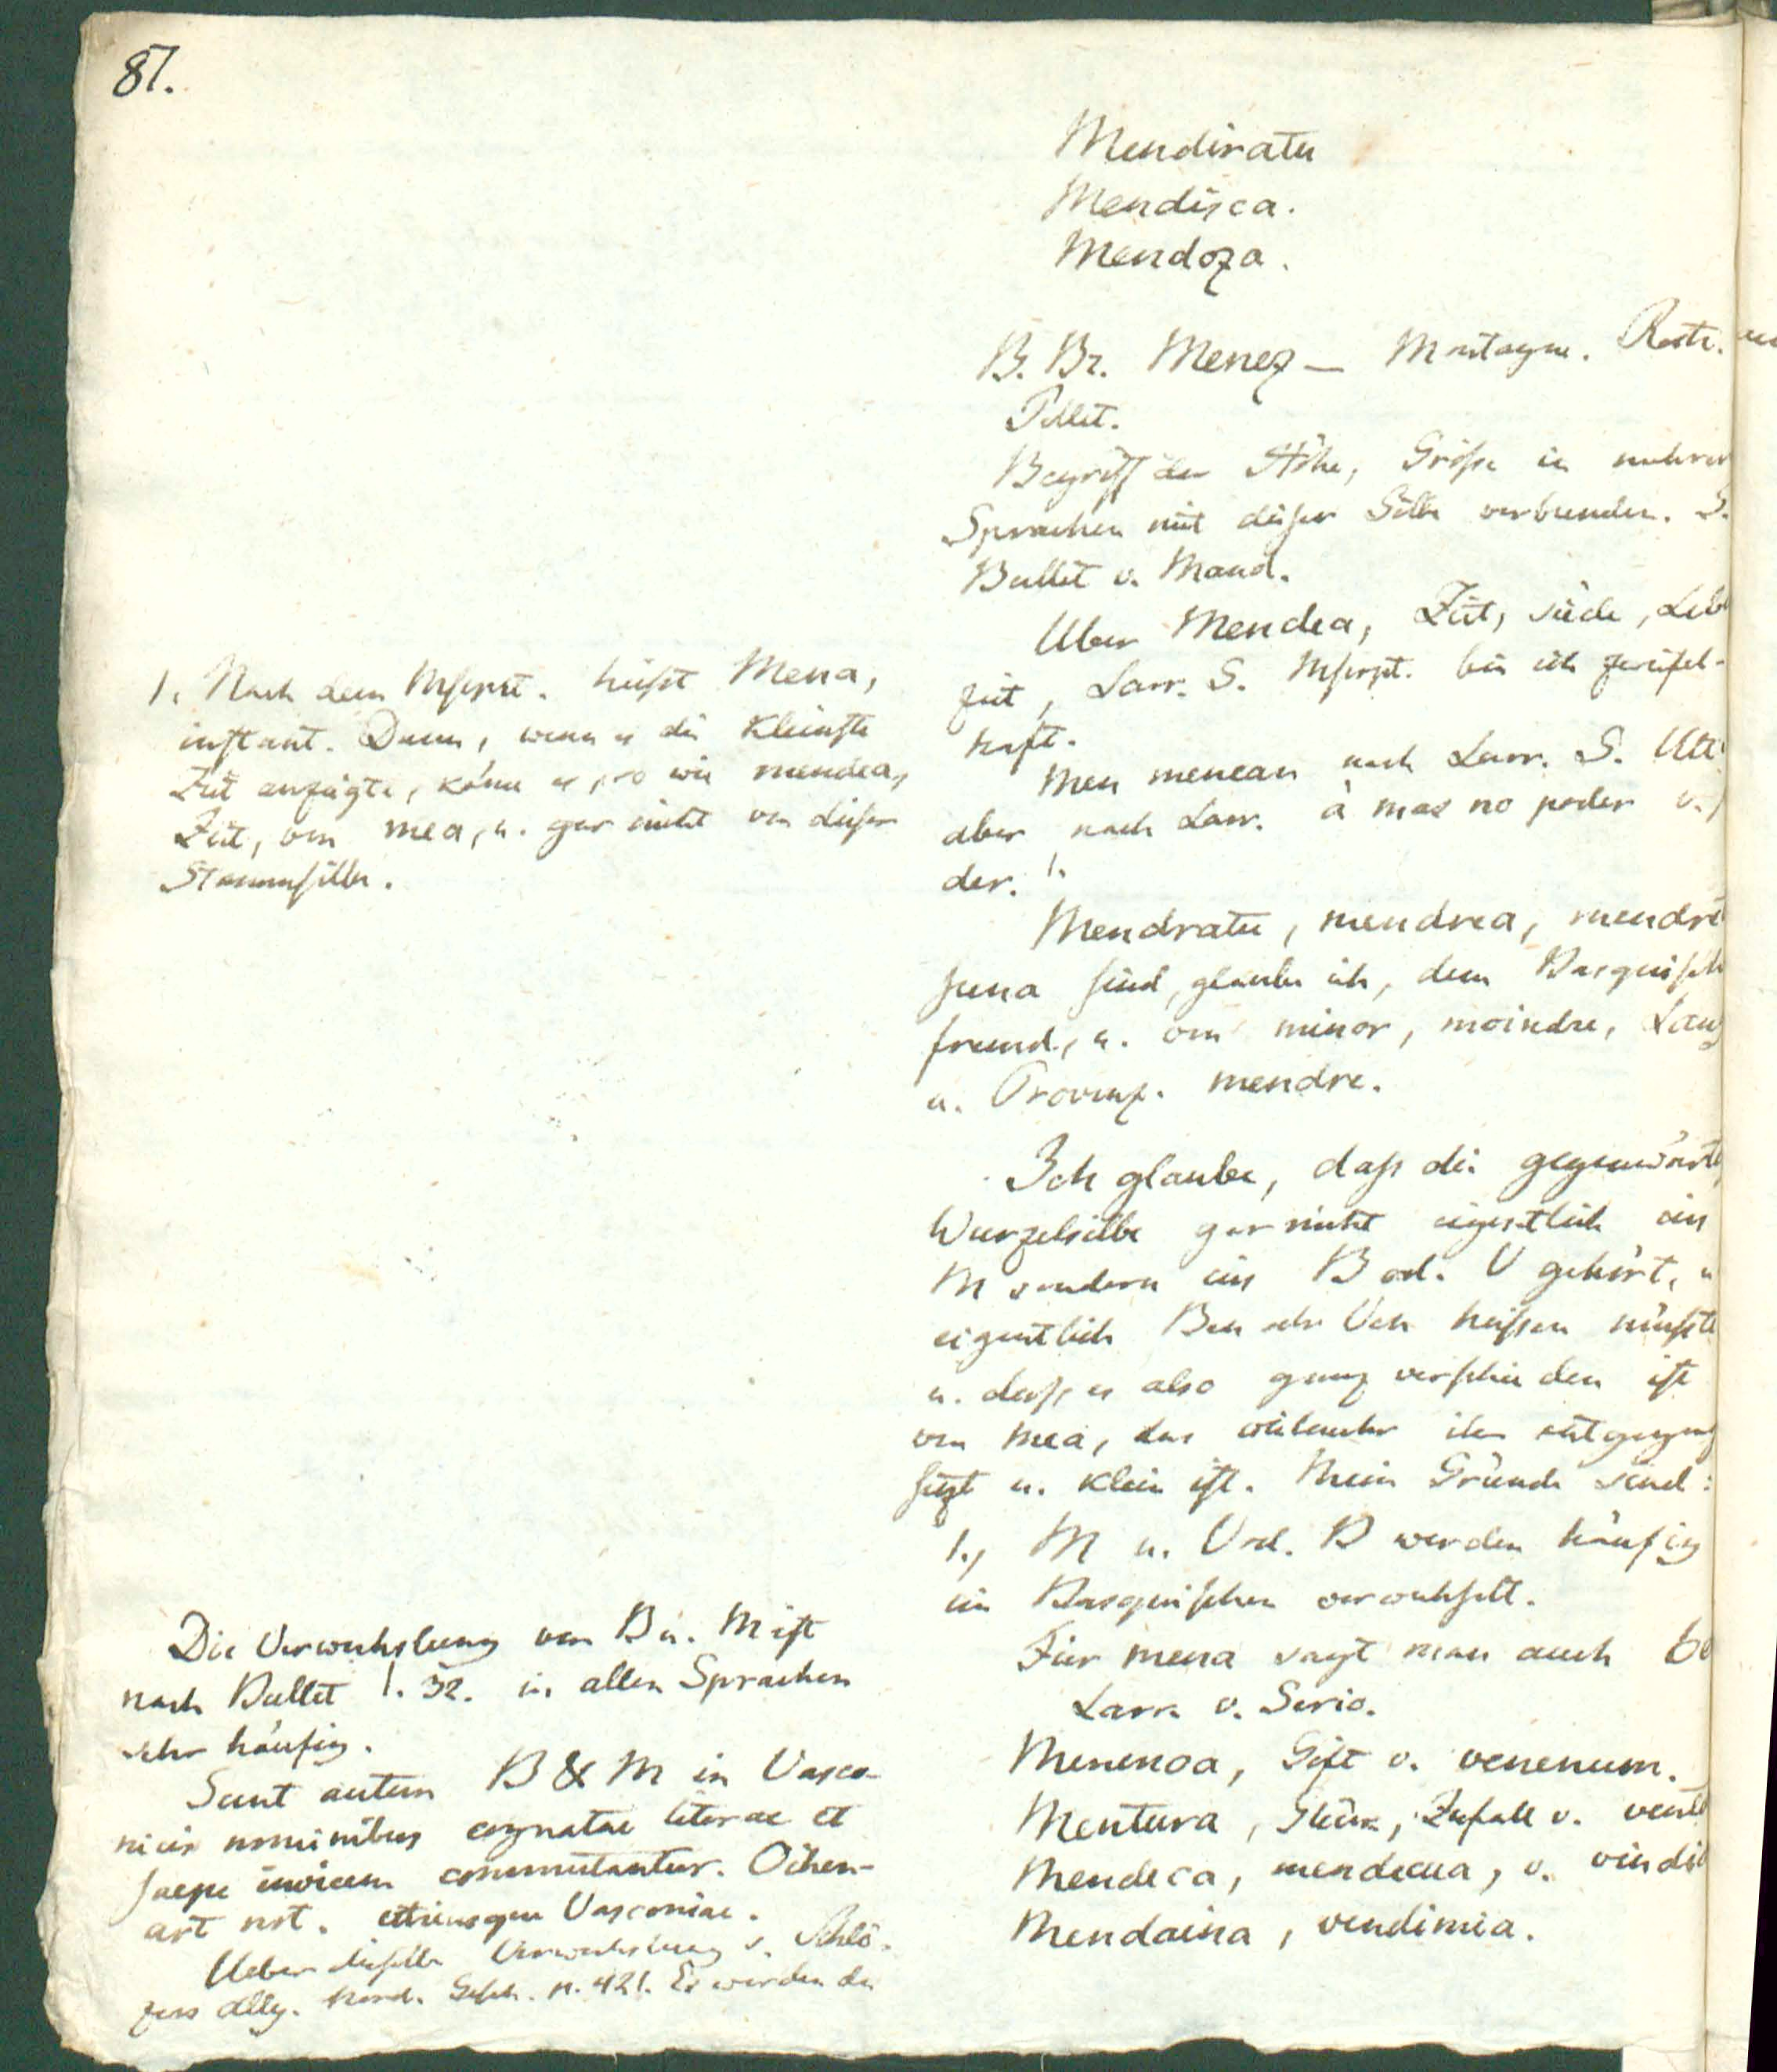 87.
Mendiratu
Mendisca.
Mendoza.
B. Br. Menez — Montagne. Rostr.
Pellet.
Begriff der Höhe, Größe in mehrer
Sprachen mit dieser Silbe verbunden. S.
Bullet v. Mand.
Über Mendea, Zeit, siècle, Leb
zeit, Larr. S. Mscrpt. bin ich zweifel-
haft.
Men menean nach Larr. S.
aber nach Larr. à mas no poder v.
der. 1.
Mendratu, mendrea, mendre
suna sind, glaube ich, dem Basquisch
fremd, u. von minor, moindre, Lang
u. Provenz. mendre.
Ich glaube, daß die gegenwärt
Wurzelsilbe gar nicht eigentlich ein
M sondern ein B od. V gehört, u
eigentlich Ben oder Ven heißen müßte
u. daß es also ganz verschieden ist
von mea, das vielmehr ihm entgegeng
setzt u. klein ist. Meine Gründe sind:
1., M u. V od. B werden häufig
im Basquischen verwechselt.
Für mena sagt man auch be
Larr. v. Serio.
Menenoa, Gift v. venenum.
Mentura, Glück, Zufall v. vent
Mendeca, mendecua, v. vindi
Mendaina, vendimia.
1. Nach dem Mscrpt. heißt Mena,
instant. Denn, wenn es die kleinste
Zeit anzeigte, käme es, so wie mendea,
Zeit, von mea, u. gar nicht von dieser
Stammsilbe.
Die Verwechslung von B u. M ist
nach Bullet 1. 32. in allen Sprachen
sehr häufig.
Sunt autem B & M in Vasco-
nicis nominibus cognatae literae et
saepe invicem commutantur. Oihen-
art not. utriusque Vasconiae.
Ueber dieselbe Verwechslung s. Schlö-
zers allg. Nord. Gesch. p. 421. Es werden da